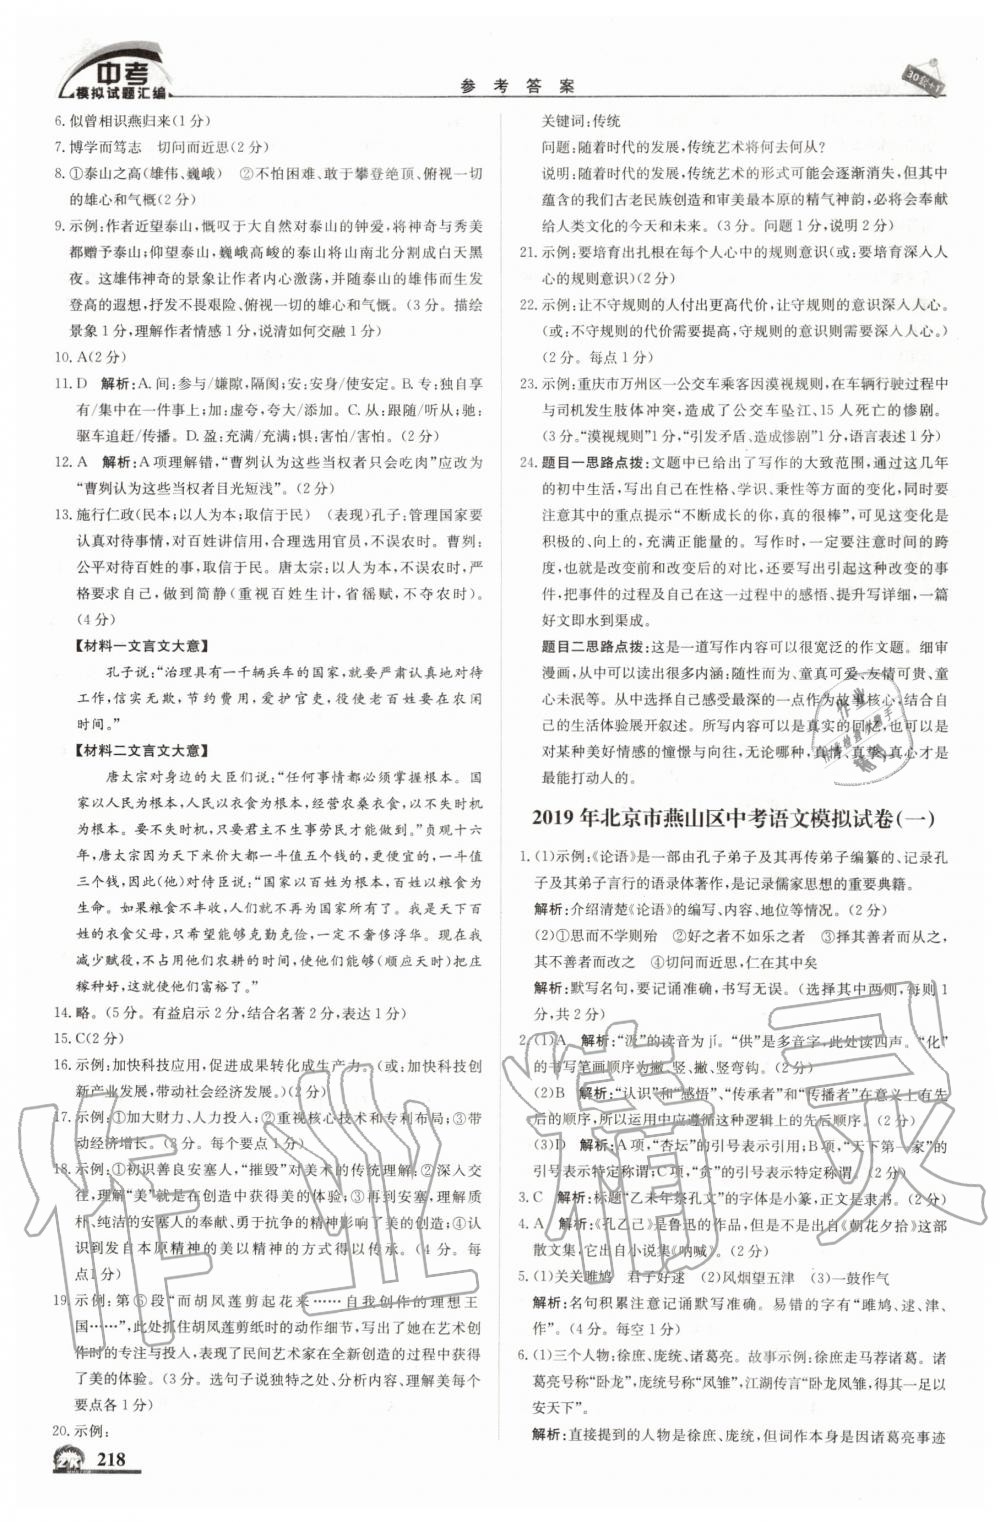 中考
模拟试题汇编
参考答案
30套+1
6. 似曾相识燕归来(1分)
7. 博学而笃志　切问而近思(2分)
8. ①泰山之高(雄伟、巍峨)　②不怕困难、敢于攀登绝顶、俯视一切
的雄心和气概(2分)
9. 示例:作者近望泰山,慨叹于大自然对泰山的钟爱,将神奇与秀美
都赠予泰山;仰望泰山,巍峨高峻的泰山将山南北分割成白天黑
夜。这雄伟神奇的景象让作者内心激荡,并随泰山的雄伟而生发
登高的遐想,抒发不畏艰险、俯视一切的雄心和气慨。(3分。描绘
景象1分,理解作者情感1分,说清如何交融1分)
10. A(2分)
11. D　解析:A.间:参与/嫌隙,隔阂;安:安身/使安定。B.专:独自享
有/集中在一件事上;加:虚夸,夸大/添加。C.从:跟随/听从;驰:
驱车追赶/传播。D.盈:充满/充满;惧:害怕/害怕。(2分)
12. A　解析:A项理解错,“曹刿认为这些当权者只会吃肉”应改为
“曹刿认为这些当权者目光短浅”。(2分)
13. 施行仁政(民本;以人为本;取信于民)　(表现)孔子:管理国家要
认真对待事情,对百姓讲信用,合理选用官员,不误农时。曹刿:
公平对待百姓的事,事事取信于民。唐太宗:以人为本,不误农时,严
格要求自己,做到简静(重视百姓生计,省徭赋,不夺农时)。
(4分)
【材料一文言文大意】
孔子说:“治理具有一千辆兵车的国家,就要严肃认真地对待
工作,信实无欺,节约费用,爱护官吏,役使老百姓要在农闲
时间。”
【材料二文言文大意】
唐太宗对身边的大臣们说:“任何事情都必须掌握根本。国
家以人民为根本,人民以衣食为根本,经营农桑衣食,以不失时机
为根本。要不失时机,只有君主不生事劳民才能做到。”贞观十六
年,太宗以全国粮价普遍一斗值五个钱,更便宜的地方,一斗值
三个钱,因此(他)对侍臣说:“国家以百姓为根本,百姓以粮食为
生命。如果粮食不丰收,人们就不再为国家所有了。我是天下百
姓的衣食父母,只希望能够克勤克俭,一定不奢侈浮华。现在我
减少赋税,不占用他们农耕的时间,使他们能够(顺应天时)把庄
稼种好,这就使他们富裕了。”
14. 略。(5分。有益启示2分,结合名著2分,表达1分)
15. C(2分)
16. 示例:加快科技应用,促进成果转化成生产力。(或:加快科技创
新产业发展,带动社会经济发展。)(2分)
17. 示例:①加大财力、人力投入;②重视核心技术和专利布局;③带
动经济增长。(3分。每个要点1分)
18. 示例:①初识善良安塞人,“摧毁”对美术的传统理解;②深入交
往,理解“美”就是在创造中获得美的体验;③再到安塞,理解质
朴、纯洁的安塞人的奉献、勇于抗争的精神影响了美的创造;④认
识到发自本原精神的美以精神的方式得以传承。(4分。每
点1分)
19. 示例:第⑥段“而胡凤莲剪起花来……自我创作的理想王
国……”,此处抓住胡凤莲剪纸时的动作细节,写出了她在艺术创
作时的专注与投入,表现了民间艺术家在全新创造的过程中获得
了美的体验。(3分。选句子说独特之处、分析内容、理解美每个
要点各1分)
20. 示例:
218
关键词:传统
问题:随着时代的发展,传统艺术将何去何从?
说明:随着时代的发展,传统艺术的形式可能会逐渐消失,但其中
蕴含的我们古老民族创造和审美最本原的精气神韵,必将会奉献
给人类文化的今天和未来。(3分。问题1分,说明2分)
21. 示例:要培育出扎根在每个人心中的规则意识(或:要培育深入人
心的规则意识)(2分)
22. 示例:让不守规则的人付出更高代价,让守规则的意识深入人心。
(或:不守规则的代价需要提高,守规则的意识则需要深入人心。)
(2分。每点1分)
23. 示例:重庆市万州区一公交车乘客因漠视规则,在车辆行驶过程中
与司机发生肢体冲突,造成了公交车坠江、15人死亡的惨剧。
(3分。“漠视规则”1分,“引发矛盾、造成惨剧”1分,语言表述1分)
24. 题目一思路点拨:文题中已给出了写作的大致范围,通过这几年
的初中生活,写出自己在性格、学识、秉性等方面的变化,同时要
注意其中的重点提示“不断成长的你,真的很棒”,可见这变化是
积极的、向上的,充满正能量的。写作时,一定要注意时间的跨
度,也就是改变前和改变后的对比,还要写出引起这种改变的事
件,把事件的过程及自己在这一过程中的感悟、提升写详细,一篇
好文即水到渠成。
题目二思路点拨:这是一道写作内容可以很宽泛的作文题。细审
漫画,从中可以读出很多内涵:随性而为、童真可爱、友情可贵、童
心未泯等。从中选择自己感受最深的一点作为故事核心,结合自
己的生活体验展开叙述。所写内容可以是真实的回忆,也可以是
对某种美好情感的憧憬与向往,无论哪种,真情、真意、真心才是
最能打动人的。
2019年北京市燕山区中考语文模拟试卷(一)
1. (1)示例:《论语》是一部由孔子弟子及其再传弟子编纂的、记录孔
子及其弟子言行的语录体著作,是记录儒家思想的重要典籍。
解析:介绍清楚《论语》的编写、内容、地位等情况。(2分)
(2)①思而不学则殆　②好之者不如乐之者　③择其善者而从之,
其不善者而改之　④切问而近思,仁在其中矣
解析:默写名句,要记诵准确,书写无误。(选择其中两则,每则1
分,共2分)
2. (1)A　解析:“汲”的读音为jí。“供”是多音字,此处读四声。“化”
的书写笔画顺序为撇、竖、撇、竖弯钩。(2分)
(2)B　解析:“认识”和“感悟”、“传承者”和“传播者”在意义上有先
后的顺序,所以运用中应遵循这种逻辑上的先后顺序。(2分)
(3)D　解析:A项,“杏坛”的引号表示引用;B项,“天下第一家”的
引号表示特定称谓;C项,“贪”的引号表示特定称谓。(2分)
3. C　解析:标题“乙未年祭孔文”的字体是小篆,正文是隶书。(2分)
4. A　解析:《孔乙己》是鲁迅的作品,但是不是出自《朝花夕拾》这部
散文集,它出自小说集《呐喊》。(2分)
5. (1)关关雎鸠　君子好逑　(2)风烟望五津　(3)一鼓作气
解析:名句积累注意记诵默写准确。易错的字有“雎鸠、逑、津、
作”。(4分。每空1分)
6. (1)三个人物:徐庶、庞统、诸葛亮。故事示例:徐庶走马荐诸葛。诸
葛亮号称“卧龙”,庞统号称“凤雏”,江湖传言“卧龙凤雏,得其一足以
安天下”。
解析:直接提到的人物是徐庶、庞统,但词作木身是因诸葛亮事迹
作业精灵